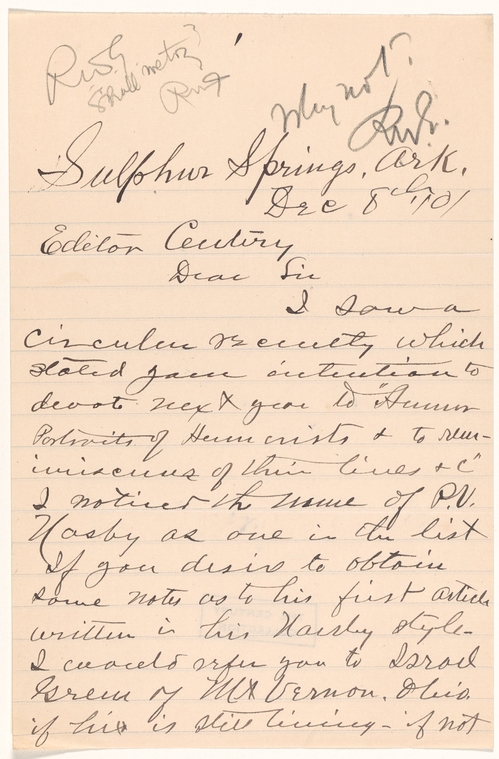 Why not?
Sulphur Springs, Ark.
Dec 8th, 01
Editor Century
Dear Sir
I saw a
circular recently which
stated your intention to
devote next year to "Humor
Portraits of Humorists & to rem-
iniscences of their lives & c"
I noticed the name of P.V.
Nasby as one in the list
If you desire to obtain
some notes as to his first article
written in his Nasby style-
I would refer you to Israel
Green of Mt Vernon. Ohio
if he is still living - if not